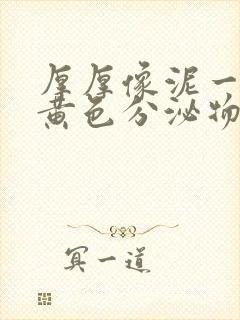 厚厚像泥一
黄色分泌物
冥一道